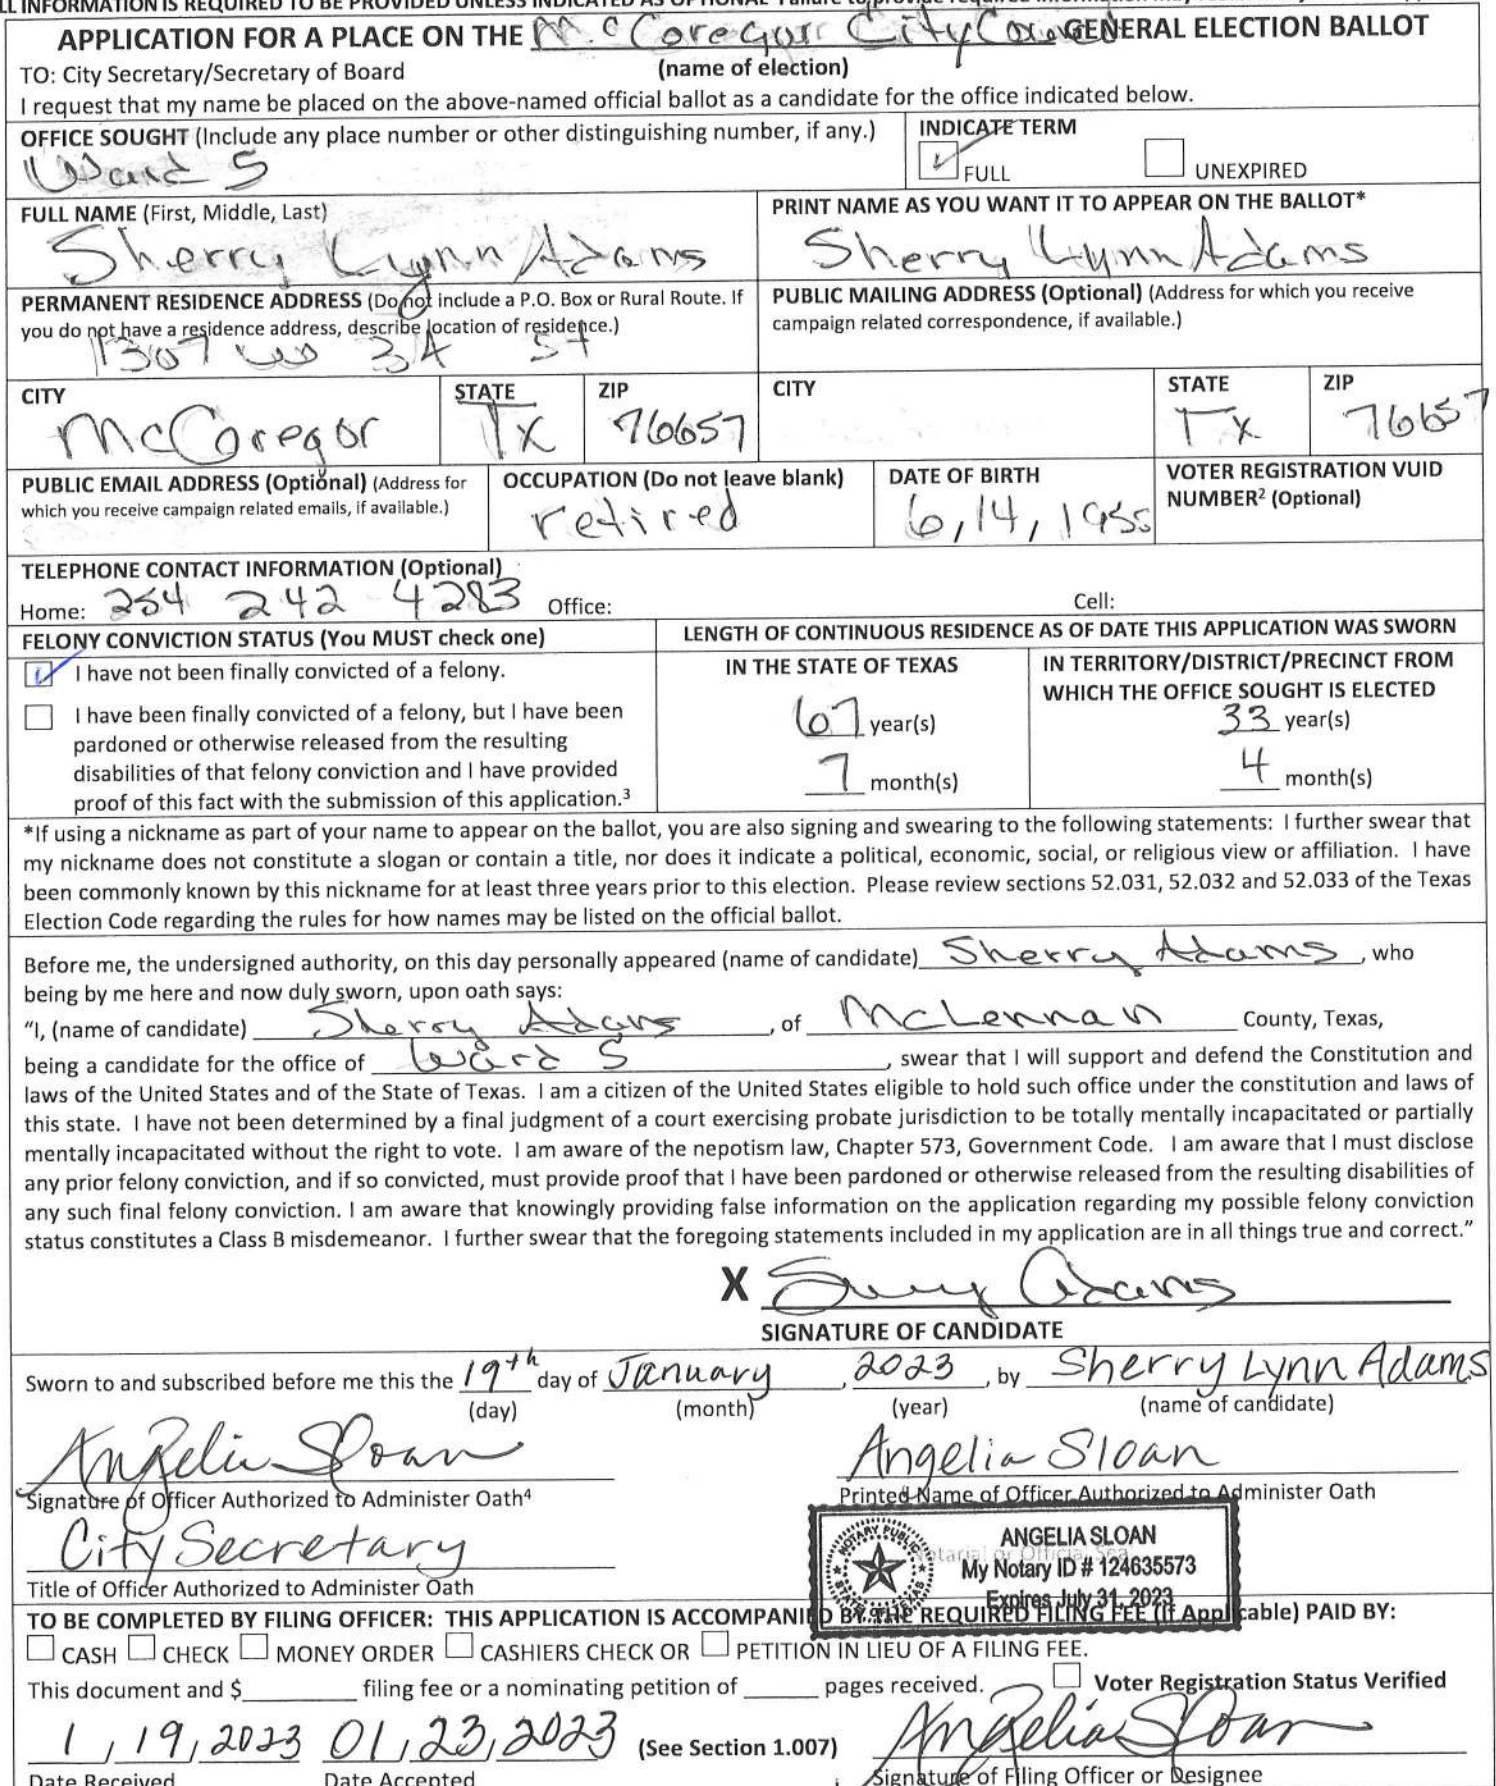 ALL INFORMATION IS REQUIRED TO BE PROVIDED UNLESS INDICATED AS OPTIONAL
APPLICATION FOR A PLACE ON THE McGregor City GENERAL ELECTION BALLOT
TO: City Secretary/Secretary of Board (name of election)
I request that my name be placed on the above-named official ballot as a candidate for the office indicated below.
OFFICE SOUGHT (Include any place number or other distinguishing number, if any.)
Ward 5
INDICATE TERM
✓ FULL UNEXPIRED
FULL NAME (First, Middle, Last)
Sherry Lynn Adams
PRINT NAME AS YOU WANT IT TO APPEAR ON THE BALLOT*
Sherry Lynn Adams
PERMANENT RESIDENCE ADDRESS (Do not include a P.O. Box or Rural Route. If
you do not have a residence address, describe location of residence.)
1307 W 3rd St
PUBLIC MAILING ADDRESS (Optional) (Address for which you receive
campaign related correspondence, if available.)
CITY STATE ZIP CITY STATE ZIP
McGregor Tx 76657 Tx 76657
PUBLIC EMAIL ADDRESS (Optional) (Address for
which you receive campaign related emails, if available.)
OCCUPATION (Do not leave blank)
retired
DATE OF BIRTH
6, 14, 1955
VOTER REGISTRATION VUID
NUMBER² (Optional)
TELEPHONE CONTACT INFORMATION (Optional)
Home: 254 242 4283 Office: Cell:
FELONY CONVICTION STATUS (You MUST check one)
✓ I have not been finally convicted of a felony.
I have been finally convicted of a felony, but I have been
pardoned or otherwise released from the resulting
disabilities of that felony conviction and I have provided
proof of this fact with the submission of this application.³
LENGTH OF CONTINUOUS RESIDENCE AS OF DATE THIS APPLICATION WAS SWORN
IN THE STATE OF TEXAS
67 year(s)
7 month(s)
IN TERRITORY/DISTRICT/PRECINCT FROM
WHICH THE OFFICE SOUGHT IS ELECTED
33 year(s)
4 month(s)
*If using a nickname as part of your name to appear on the ballot, you are also signing and swearing to the following statements: I further swear that
my nickname does not constitute a slogan or contain a title, nor does it indicate a political, economic, social, or religious view or affiliation. I have
been commonly known by this nickname for at least three years prior to this election. Please review sections 52.031, 52.032 and 52.033 of the Texas
Election Code regarding the rules for how names may be listed on the official ballot.
Before me, the undersigned authority, on this day personally appeared (name of candidate) Sherry Adams, who
being by me here and now duly sworn, upon oath says:
"I, (name of candidate) Sherry Adams, of McLennan County, Texas,
being a candidate for the office of Ward 5, swear that I will support and defend the Constitution and
laws of the United States and of the State of Texas. I am a citizen of the United States eligible to hold such office under the constitution and laws of
this state. I have not been determined by a final judgment of a court exercising probate jurisdiction to be totally mentally incapacitated or partially
mentally incapacitated without the right to vote. I am aware of the nepotism law, Chapter 573, Government Code. I am aware that I must disclose
any prior felony conviction, and if so convicted, must provide proof that I have been pardoned or otherwise released from the resulting disabilities of
any such final felony conviction. I am aware that knowingly providing false information on the application regarding my possible felony conviction
status constitutes a Class B misdemeanor. I further swear that the foregoing statements included in my application are in all things true and correct."
X Sherry Adams
SIGNATURE OF CANDIDATE
Sworn to and subscribed before me this the 19th day of January, 2023, by Sherry Lynn Adams
(day) (month) (year) (name of candidate)
Angelia Sloan Angelia Sloan
Signature of Officer Authorized to Administer Oath⁴ Printed Name of Officer Authorized to Administer Oath
City Secretary
Title of Officer Authorized to Administer Oath
Notarial or Official Seal
NOTARY PUBLIC
STATE OF TEXAS
ANGELIA SLOAN
My Notary ID # 124635573
Expires July 31, 2023
TO BE COMPLETED BY FILING OFFICER: THIS APPLICATION IS ACCOMPANIED BY THE REQUIRED FILING FEE (If Applicable) PAID BY:
CASH CHECK MONEY ORDER CASHIERS CHECK OR PETITION IN LIEU OF A FILING FEE.
This document and $ filing fee or a nominating petition of pages received. Voter Registration Status Verified
1, 19, 2023 01, 23, 2023 (See Section 1.007) Angelia Sloan
Date Received Date Accepted Signature of Filing Officer or Designee